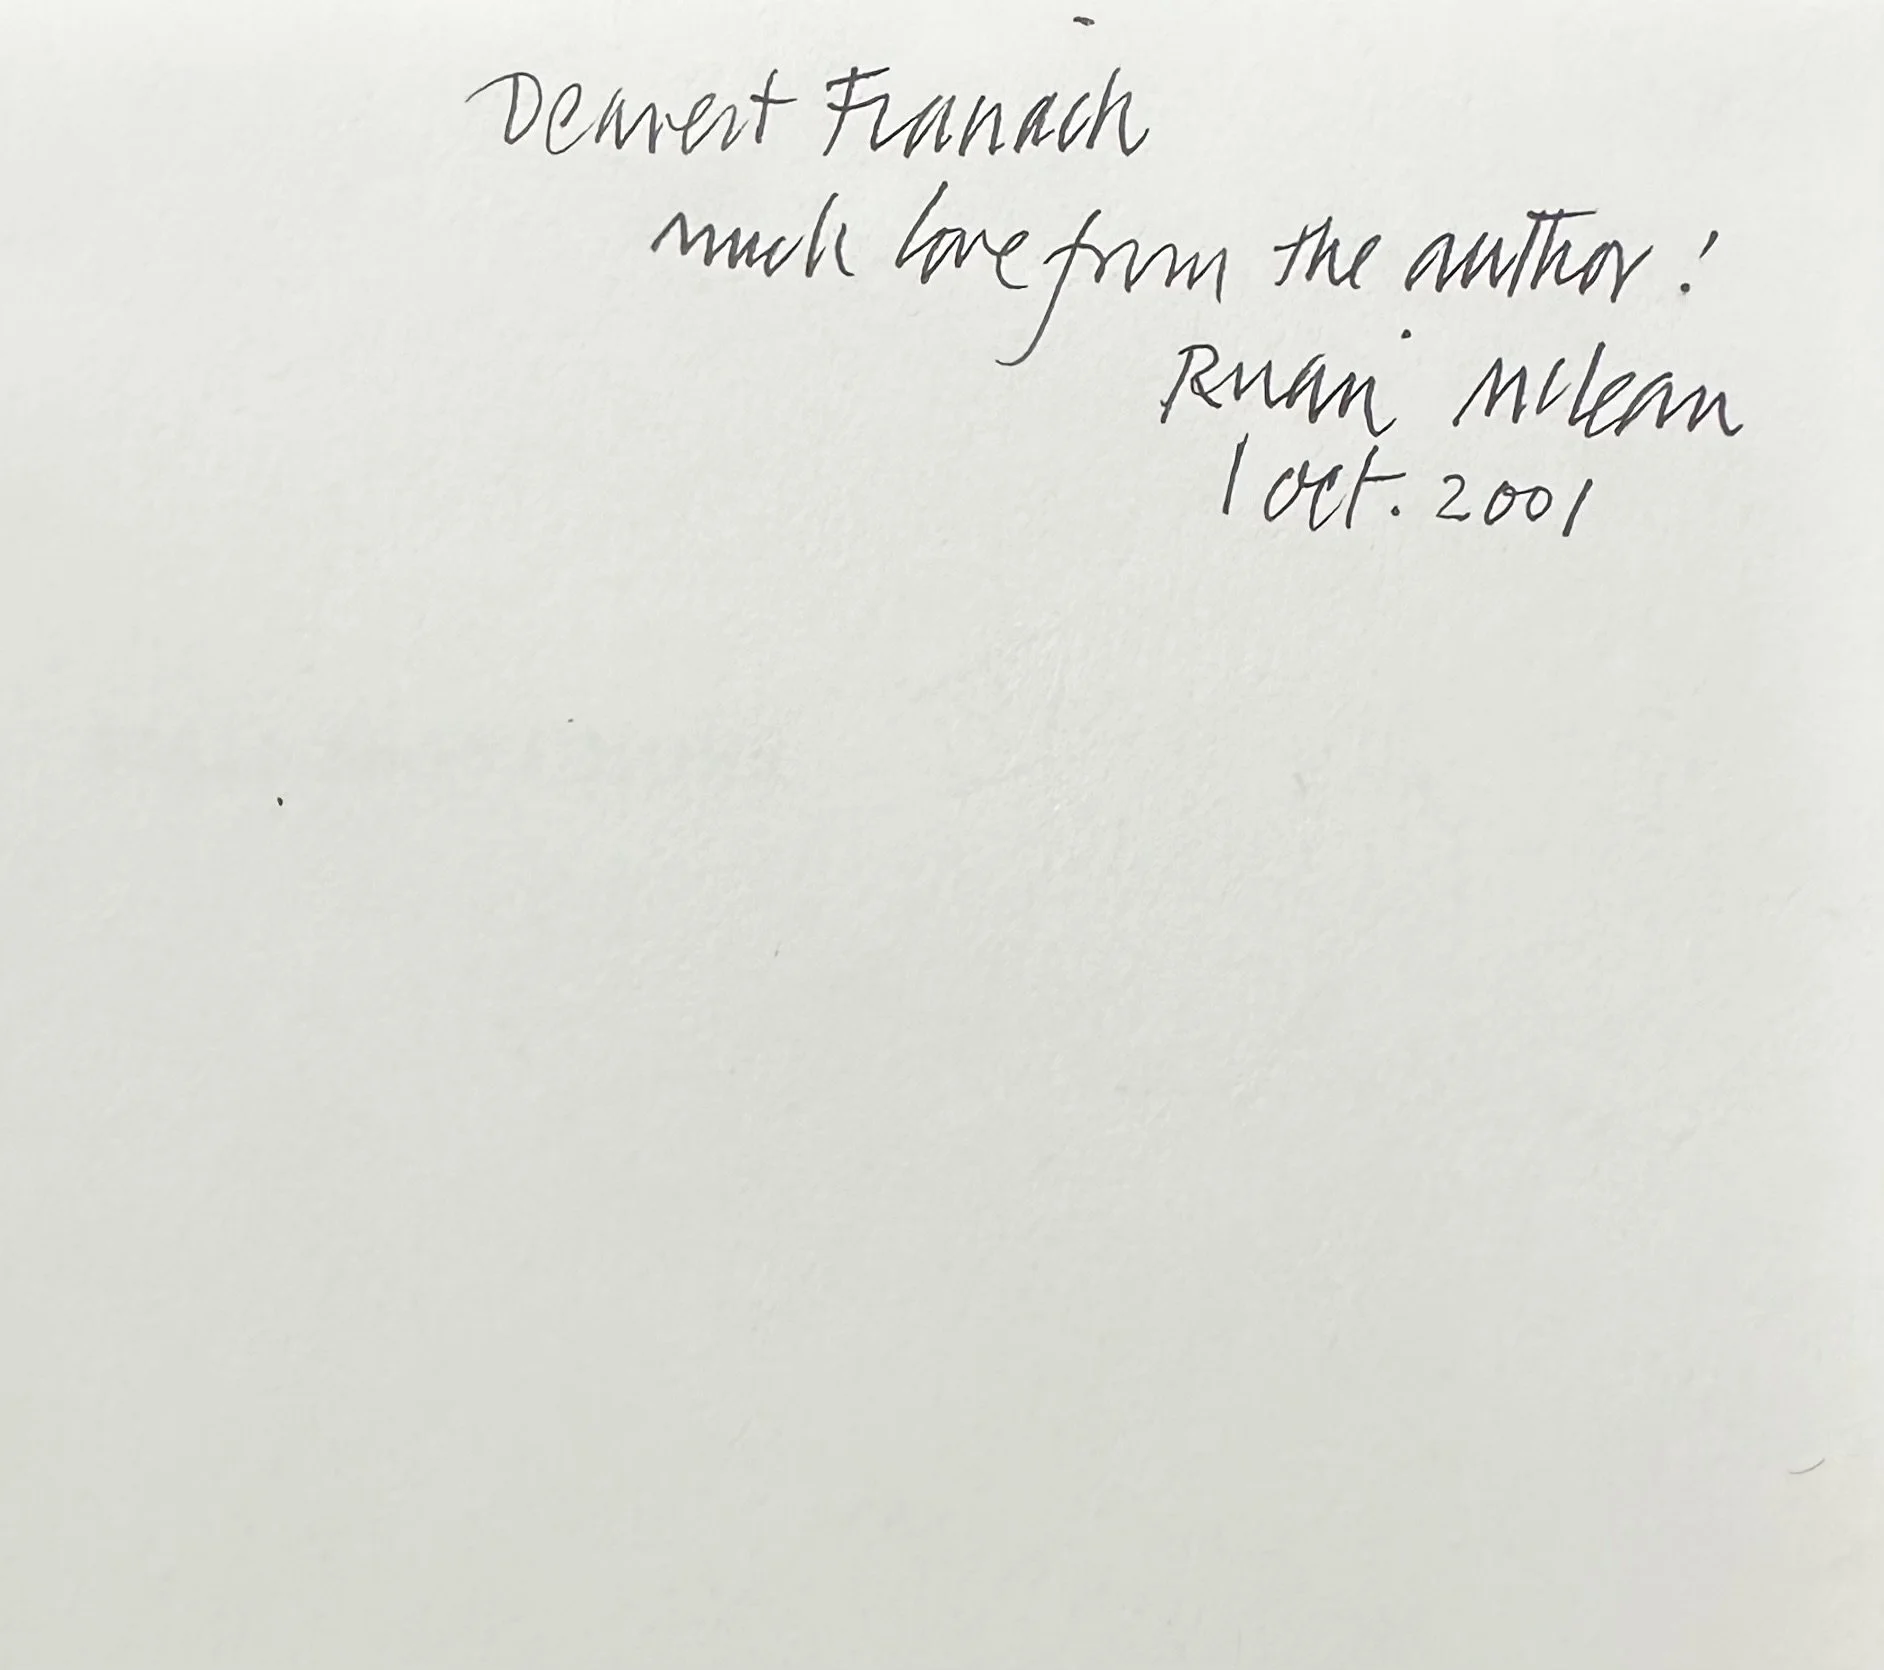 Dearest Fianach
much love from the author!
Ruari McLean
1 Oct. 2001